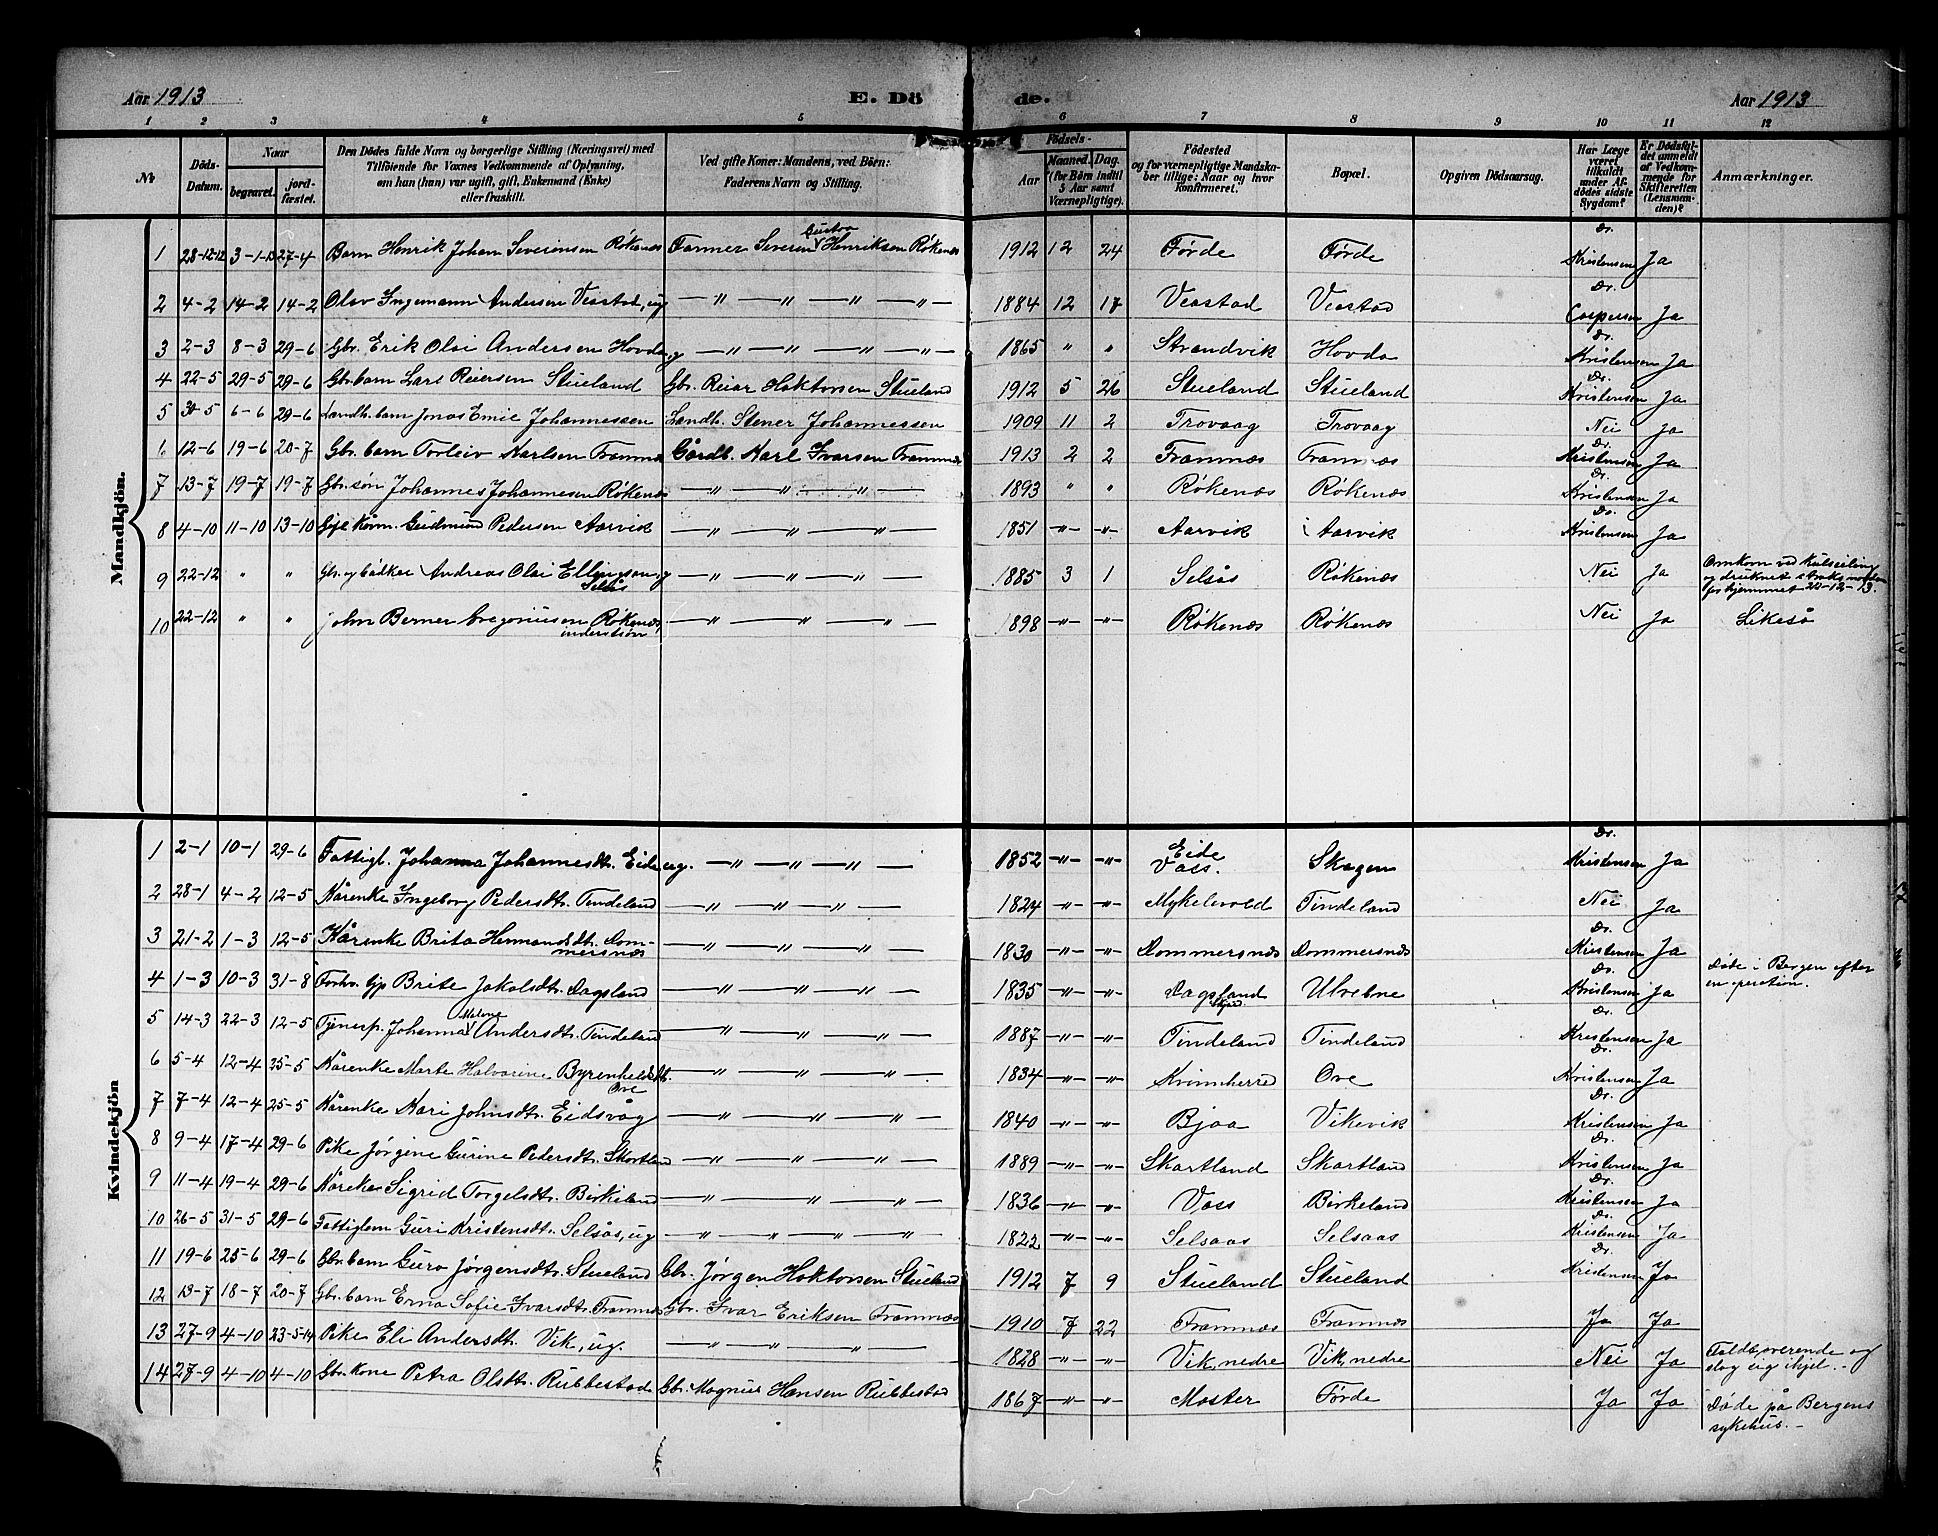 Aar 1913 E. Dö de. Aar 1913
1 2 3 4 5 6 7 8 9 10 11 12
№ Döds-Datum. Naar begravet. jordfæstet. Den Dödes fulde Navn og borgerlige Stilling (Næringsvei) med Tilföiende for Voxnes Vedkommende af Oplysning, om han (hun) var ugift, gift, Enkemand (Enke) eller fraskilt. Ved gifte Koner: Mandens, ved Börn: Faderens Navn og Stilling. Födsels- Aar Maaned. Dag. (for Börn indtil 5 Aar samt Værnepligtige). Födested og for værnepligtige Mandskaber tillige: Naar og hvor Konfirmeret. Bopæl. Opgiven Dödsaarsag. Har Læge været tilkaldt under Afdödes sidste Sygdom? Er Dödsfaldet anmeldt af Vedkommende for Skifteretten (Lensmanden)? Anmærkninger.
Mandkjön.
1 28-12-12 3-1-13 27-4 Barn Henrik Johan Severinsen Røkenæs Farmer Severin Gustav Henriksen Røkenæs 1912 12 24 Førde Førde Dr. Kristensen Ja
2 4-2 14-2 14-2 Olav Ingemann Andersen Veastad, ug — " — " — " — " — 1884 12 17 Veastad Veastad Dr. Caspersen Ja
3 2-3 8-3 29-6 Gbr. Erik Olai Andersen Hovda, g — " — " — " — " — 1865 " " Strandvik Hovda Dr. Kristensen Ja
4 22-5 29-5 29-6 Gbr. barn Lars Reiersen Stueland Gbr. Reiar Haktorsen Stueland 1912 5 26 Stueland Stueland Dr. Kristensen Ja
5 30-5 6-6 29-6 Landh. barn Jonas Emil Johannessen Landh. Stener Johannessen 1909 11 2 Trovaag Trovaag Nei Ja
6 12-6 19-6 20-7 Gbr. barn Torleiv Karlsen Framnæs Gårdb. Karl Ivarsen Framnæs 1913 2 2 Framnæs Framnæs Dr. Kristensen Ja
7 13-7 19-7 19-7 Gbr. søn Johannes Johannesen Røkenæs — " — " — " — 1893 " " Røkenæs Røkenæs Dr. Kristensen Ja
8 4-10 11-10 13-10 Gudmund Pedersen Aarvik — " — " — " — 1851 -"- -"- Aarvik Aarvik Dr. Kristensen Ja
9 22-12 " " Gbr. og bødker Andreas Olai Ellingsen, g Selsås — " — " — " — 1885 3 1 Selsås Røkenæs Nei Ja Omkom ved Kulseiling og druknet straks hjemmet 22-12-13.
10 22-12 " " John Berner Gregoriussen Røkenæs, — " — " — " — 1898 -"- -"- Røkenæs Røkenæs Nei Ja Likeså
Kvindekjön
1 2-1 10-1 29-6 Fattigl. Johanna Johannesdt. Eide ug. — " — " — " — 1852 -"- -"- Eide Voss. Skagen Dr. Kristensen Ja
2 28-1 4-2 12-5 Kårenke Ingeborg Pedersdt. Tindeland — " — " — " — 1824 -"- -"- Mykelvold Tindeland Nei Ja
3 21-2 1-3 12-5 Kårenke Brita Hermandsdt. Dommersnæs — " — " — " — 1830 -"- -"- Dommersnæs Dommersnæs Dr. Kristensen Ja
4 1-3 10-3 31-8 Brite Jakobsdt. Dagsland — " — " — " — 1835 -"- -"- Dagsland Ulvebne Dr. Kristensen Ja Døde i Bergen efter en operation.
5 14-3 22-3 12-5 Tjenesp. Johanna Malene Andersdt. Tindeland — " — " — " — 1887 -"- -"- Tindeland Tindeland Dr. Kristensen Ja
6 5-4 12-4 25-5 Kårenke Marte Halvorine Byrenheldsdt. Ove — " — " — " — 1834 -"- -"- Kvinnherred Ove Dr. Kristensen Ja
7 7-4 12-4 25-5 Kårenke Kari Johnsdt. Eidsvåg — " — " — " — 1840 -"- -"- Bjoa Vikevik Dr. Kristensen Ja
8 9-4 17-4 29-6 Pike Jørgine Gurine Pedersdt. Skartland — " — " — " — 1889 -"- -"- Skartland Skartland Dr. Kristensen Ja
9 11-4 19-4 29-6 Kåreke Sigrid Torgelsdt. Birkeland — " — " — " — 1836 -"- -"- Voss Birkeland Dr. Kristensen Ja
10 26-5 31-5 29-6 Fattiglem Guri Kristensdt. Selsås, ug — " — " — " — " 1822 -"- -"- Selsaas Selsaas Dr. Kristensen Ja
11 19-6 25-6 29-6 Gbr. barn Guro Jørgensdt. Stueland Gbr. Jørgen Haktorsen Stueland 1912 7 9 Stueland Stueland Dr. Kristensen Ja
12 13-7 18-7 20-7 Gbr. barn Erna Sofie Ivarsdt. Framnæs Gbr. Ivar Eriksen Framnæs 1910 7 22 Framnæs Framnæs Ja Ja
13 27-9 4-10 23-5-14 Pike Eli Andersdt. Vik, ug. — " — " — " — 1828 -"- -"- Vik, nedre Vik, nedre Nei Ja Faldt overende og slog sig ihjel. -
14 27-9 4-10 4-10 Gbr. Kone Petra Olsdtr. Rubbestad Gbr. Magnus Hansen Rubbestad 1867 -"- -"- Moster Førde Ja Ja Døde på Bergens sykehus. -